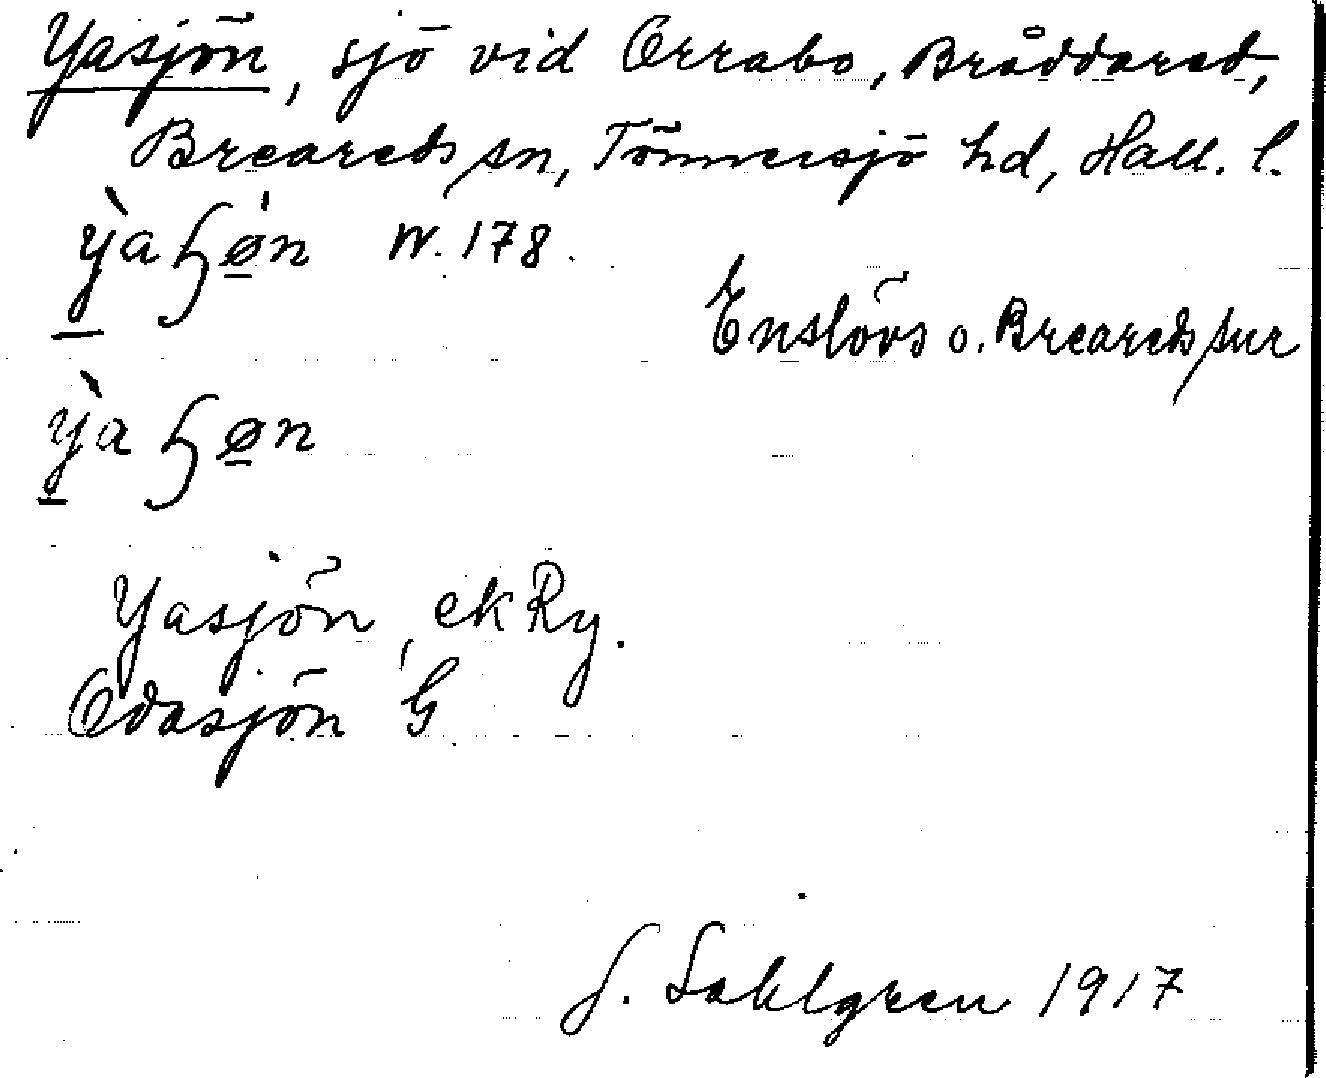 Yasjön, sjö vid Orrabo, Bråddared,
Breareds sn, Tönnersjö hd, Hall. l.
ỳ̱aɧǿ̱n W. 178.
Enslövs o. Breareds snr
ỳ̱aɧø̱n
Yasjön, ekRy.
Odasjön G
J. Sahlgren 1917